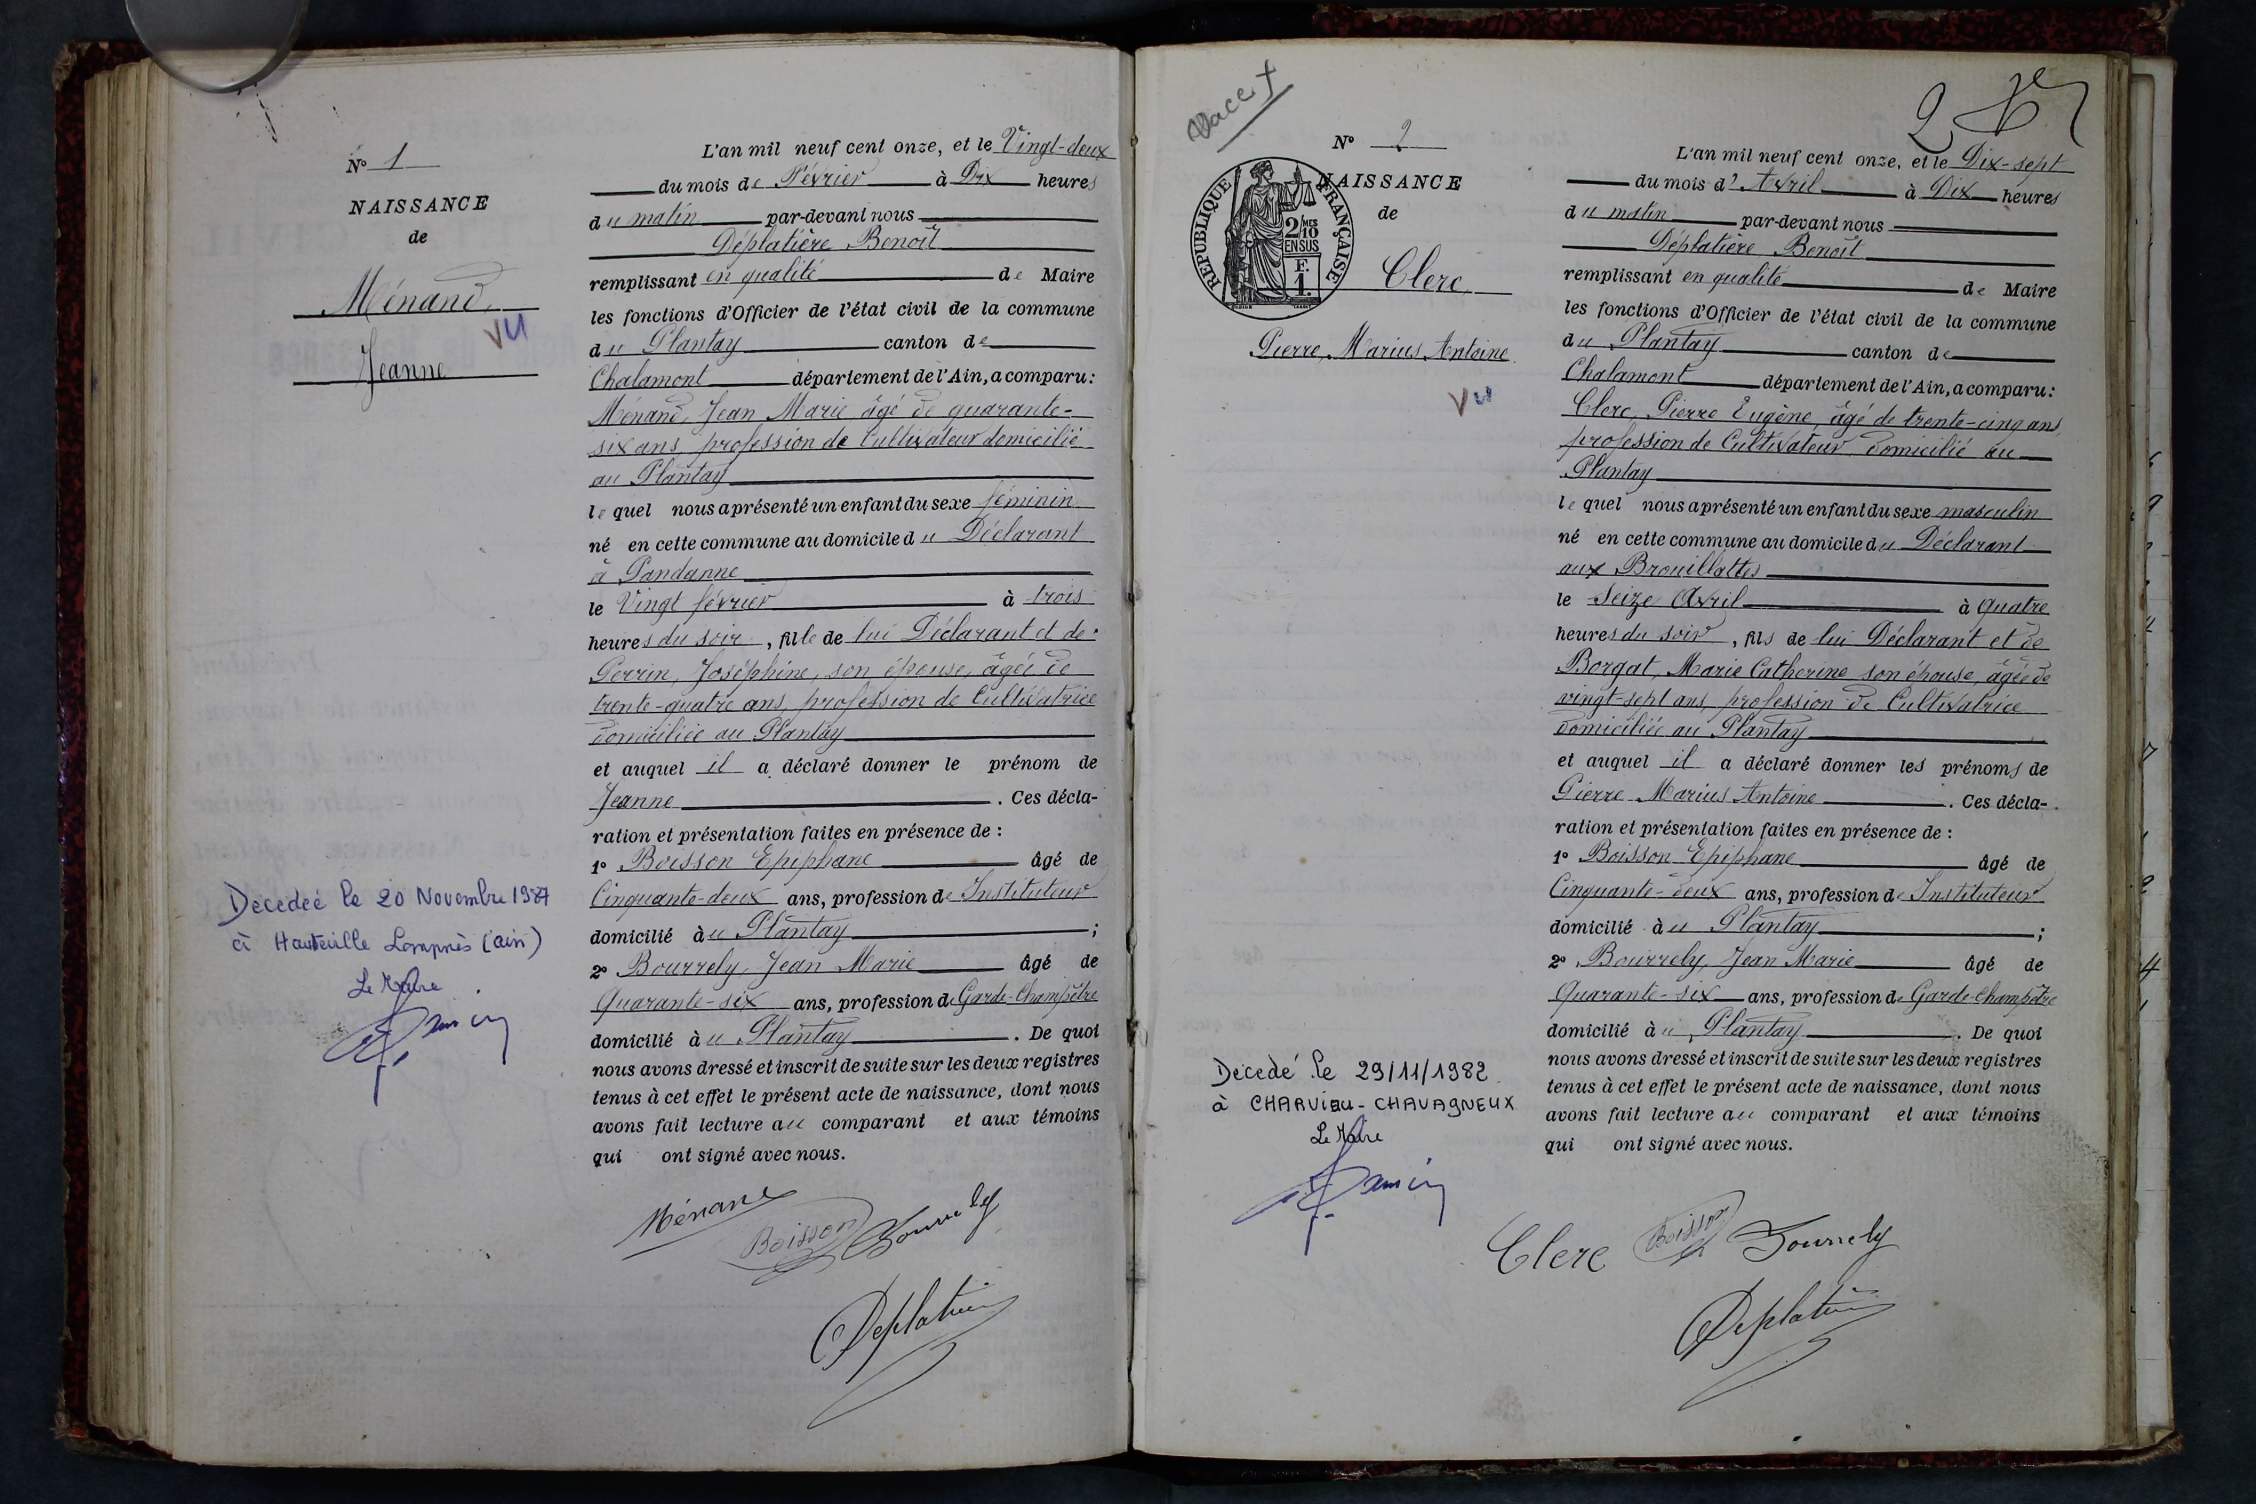 N° 1
NAISSANCE
de
Ménand,
VU
Jeanne
Decedeé le 20 Novembre 1987
à Hauteville Lompnès (ain)
Le Maire
L'an mil neuf cent onze, et le Vingt-deux
du mois de Février à Dix heures
du matin par-devant nous
Déplatière Benoît
remplissant en qualité de Maire
les fonctions d'Officier de l'état civil de la commune
du Plantay canton de
Chalamont département de l'Ain, a comparu:
Ménand, Jean Marie âgé de quarante-
six ans, profession de Cultivateur domicilié
au Plantay
lequel nous a présenté un enfant du sexe féminin
né en cette commune au domicile du Déclarant
à Pandanne
le Vingt février à trois
heures du soir, fille de lui Déclarant et de
Perrin, Joséphine, son épouse, âgée de
trente-quatre ans, profession de Cultivatrice
domiciliée au Plantay
et auquel il a déclaré donner le prénom de
Jeanne. Ces décla-
ration et présentation faites en présence de :
1° Boisson Epiphane âgé de
Cinquante-deux ans, profession de Instituteur
domicilié à u Plantay ;
2° Bourrely, Jean Marie âgé de
Quarante-six ans, profession de Garde-Champêtre
domicilié à u Plantay. De quoi
nous avons dressé et inscrit de suite sur les deux registres
tenus à cet effet le présent acte de naissance, dont nous
avons fait lecture au comparant et aux témoins
qui ont signé avec nous.
Ménand
Boisson Bourrely
Deplatière
2
N° 2
RÉPUBLIQUE FRANÇAISE
2/10 MES
EN SUS
F.
1.
NAISSANCE
de
Clerc,
Pierre, Marius Antoine
VU
Décedé le 29/11/1982
à CHARVIEU-CHAVAGNEUX
Le Maire
L'an mil neuf cent onze, et le Dix-sept
du mois d'Avril à Dix heures
du matin par-devant nous
Déplatière Benoît
remplissant en qualité de Maire
les fonctions d'Officier de l'état civil de la commune
du Plantay canton de
Chalamont département de l'Ain, a comparu:
Clerc, Pierre Eugène, âgé de trente-cinq ans,
profession de Cultivateur domicilié au
Plantay
lequel nous a présenté un enfant du sexe masculin
né en cette commune au domicile du Déclarant
aux Brouillattes
le Seize Avril à quatre
heures du soir, fils de lui Déclarant et de
Borgat, Marie Catherine son épouse, âgée de
vingt-sept ans, profession de Cultivatrice
domiciliée au Plantay
et auquel il a déclaré donner les prénoms de
Pierre Marius Antoine. Ces décla-
ration et présentation faites en présence de :
1° Boisson Epiphane âgé de
Cinquante-deux ans, profession de Instituteur
domicilié à u Plantay ;
2° Bourrely, Jean Marie âgé de
Quarante-six ans, profession de Garde-Champêtre
domicilié à u Plantay. De quoi
nous avons dressé et inscrit de suite sur les deux registres
tenus à cet effet le présent acte de naissance, dont nous
avons fait lecture au comparant et aux témoins
qui ont signé avec nous.
Clerc Boisson Bourrely
Deplatière